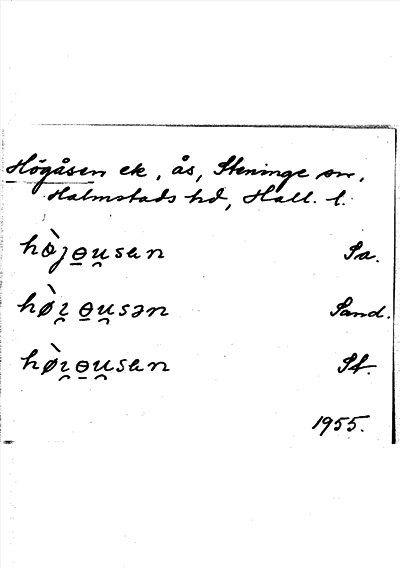 Högåsen ek, ås, Steninge sn,
Halmstads hd, Hall. l.
hø̀jɵu̯sen Sa.
hø̀ı̯ɵu̯sən Sand.
hø̀ı̯ɵu̯sen St.
1955.